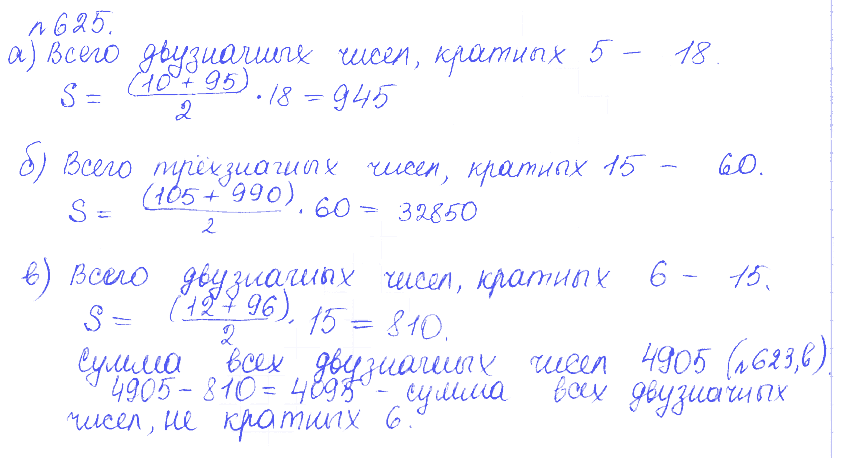 №625.
а) Всего двузначных чисел, кратных 5 – 18.
S = (10 + 95)/2 · 18 = 945
б) Всего трёхзначных чисел, кратных 15 – 60.
S = (105 + 990)/2 · 60 = 32850
в) Всего двузначных чисел, кратных 6 – 15.
S = (12 + 96)/2 · 15 = 810.
Сумма всех двузначных чисел 4905 (№623, в).
4905 – 810 = 4095 – сумма всех двузначных
чисел, не кратных 6.